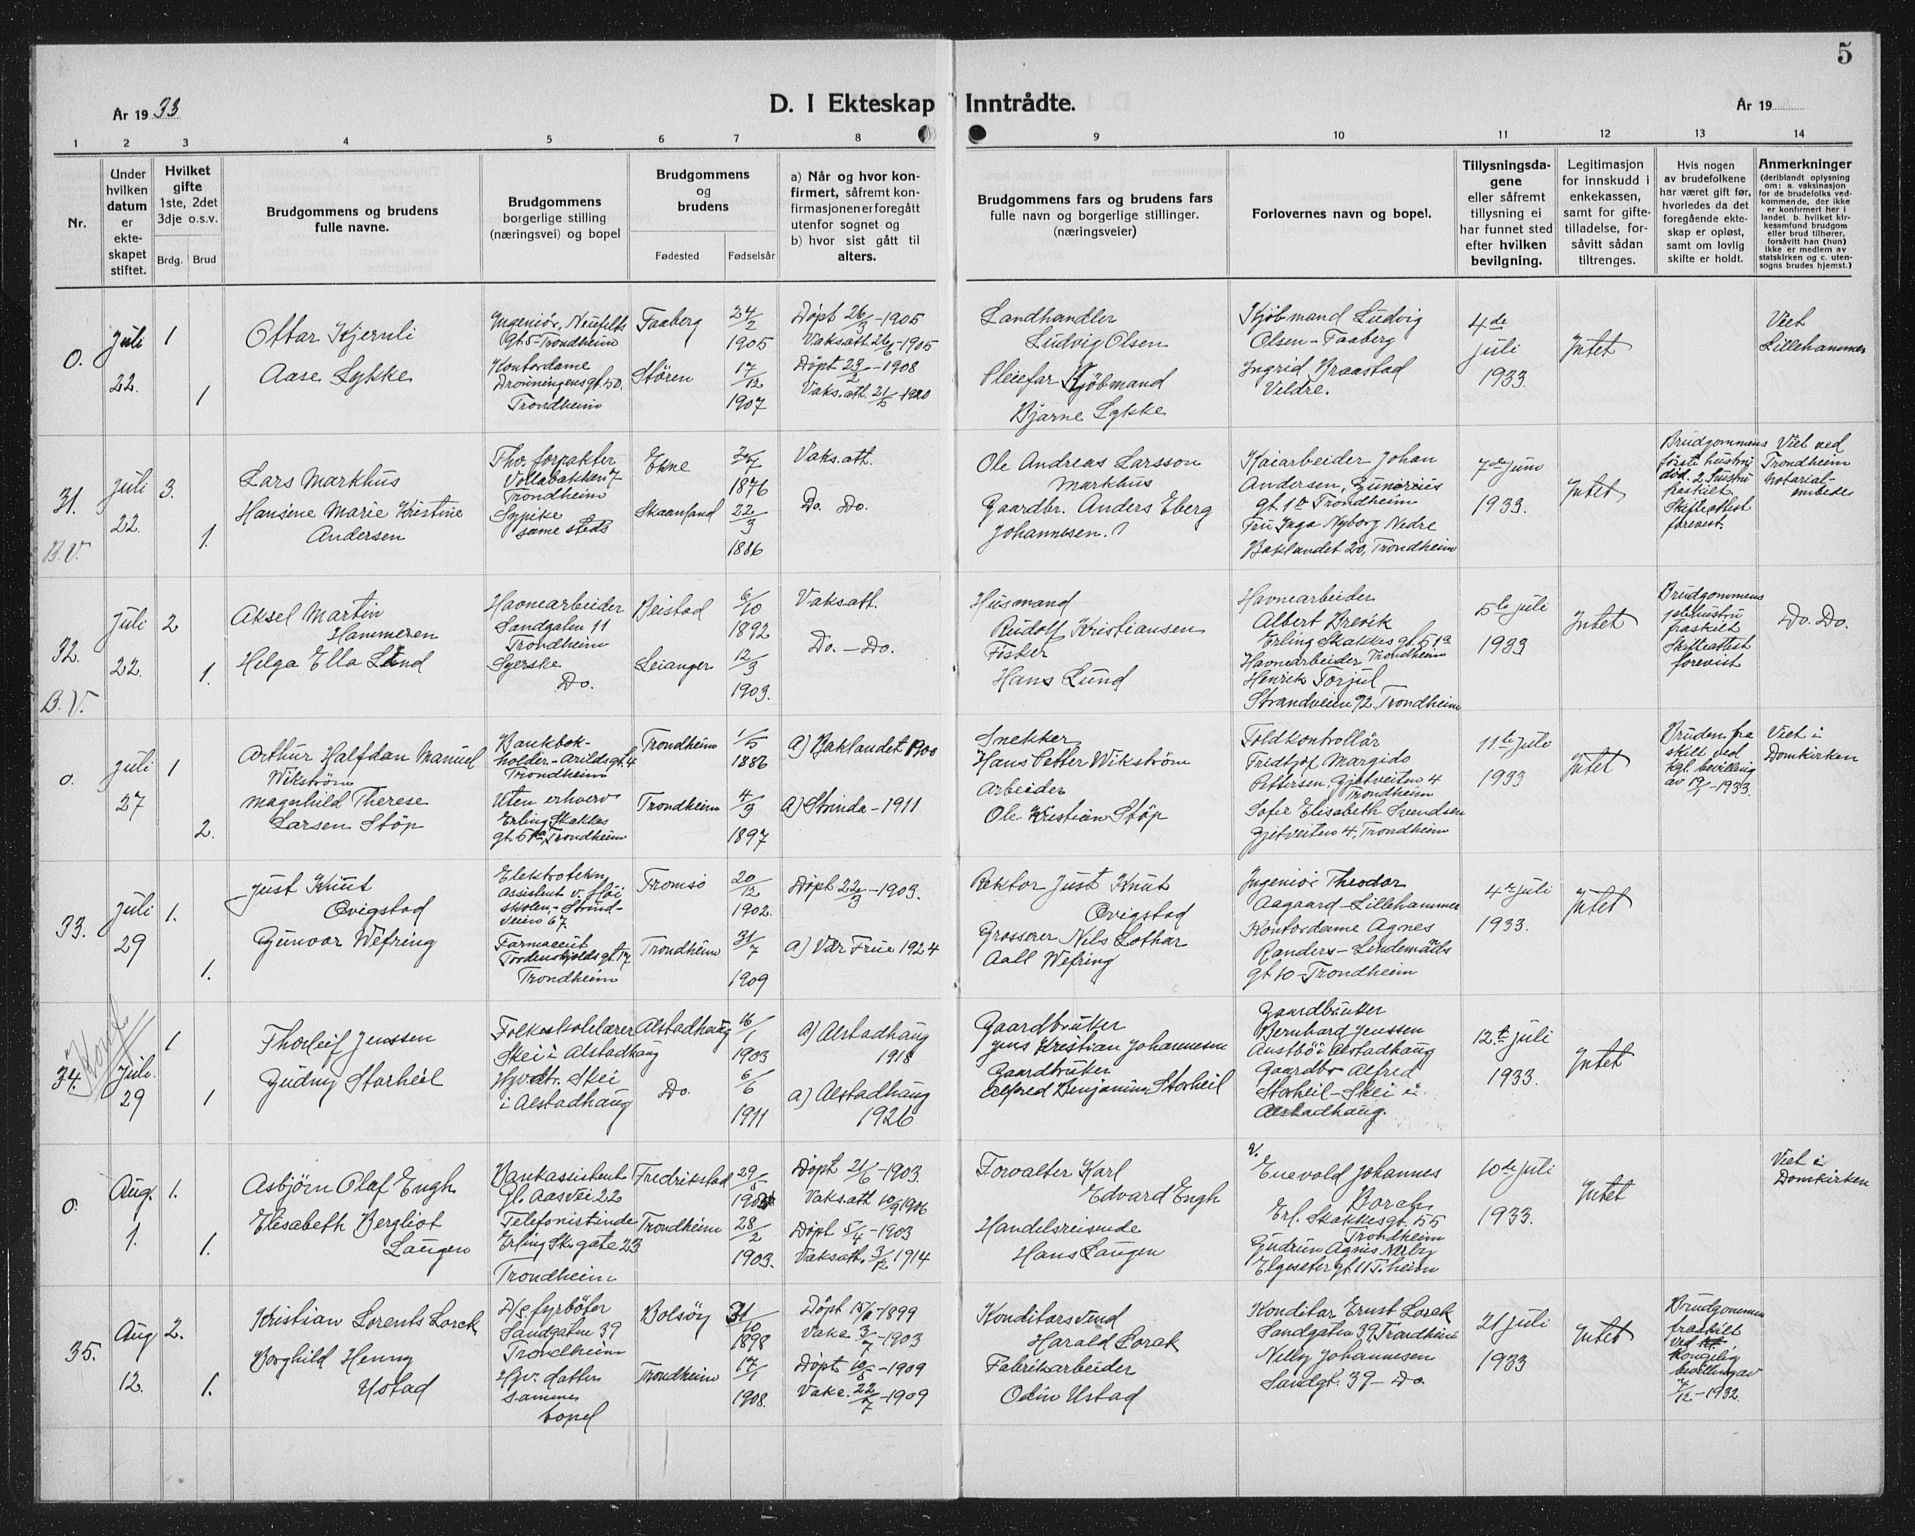 5
År 1933
D. I Ekteskap Inntrådte.
År 19
1 2 3 4 5 6 7 8 9 10 11 12 13 14
Nr.
Under hvilken datum er ekteskapet stiftet.
Hvilket gifte 1ste, 2det 3dje o.s.v.
Brdg. Brud
Brudgommens og brudens fulle navne.
Brudgommens borgerlige stilling (næringsvei) og bopel
Brudgommens og brudens
Fødested Fødselsår
a) Når og hvor konfirmert, såfremt konfirmasjonen er foregått utenfor sognet og
b) hvor sist gått til alters.
Brudgommens fars og brudens fars fulle navn og borgerlige stillinger. (næringsveier)
Forlovernes navn og bopel.
Tillysningsdagene eller såfremt tillysning ei har funnet sted efter hvilken bevilgning.
Legitimasjon for innskudd i enkekassen, samt for giftetilladelse, forsåvitt sådan tiltrenges.
Hvis nogen av brudefolkene har været gift før, hvorledes da det foregående ekteskap er opløst, samt om lovlig skifte er holdt.
Anmerkninger (deriblandt oplysning om: a. vaksinasjon for de brudefolks vedkommende, der ikke er konfirmert her i landet. b. hvilket kirkesamfund brudgom eller brud tilhører, forsåvitt han (hun) ikke er medlem av statskirken og c. utensogns brudes hjemst.)
0.
Juli 22.
1
1
Ottar Kjernli
Aase Lykke
Ingeniør, Neufelts
gt 5 - Trondheim
Kontordame
Dronningens gt. 50.
Trondheim
Faaberg
Støren
24/2 1905
17/12 1907
Døpt 26/3-1905
Vaks.att 26/6-1905
Døpt 23/2-1908
Vaks.att. 21/5-1920
Landhandler
Ludvig Olsen
Pleiefar Kjøbmand
Bjarne Lykke
Kjøbmand Ludvig
Olsen - Faaberg
Ingrid Braastad
Veldre.
4de juli 1933
Intet
Viet
Lillehammer
31.
B.V.
Juli 22
3.
1.
Lars Markhus
Hansine Marie Kristine
Andersen
Fhv. forpakter
Vollabakken 7
Trondheim
Sypike
samesteds
Ekne
Skaanland
1876
22/3 1886
Vaks.att.
Do. Do.
Ole Andreas Larsson
Markhus
Gaardbr. Anders Eberg
Johannesen.
Kaiarbeider Johan
Andersen, Gunerius
gt. 1b Trondheim
Fru Inga Nyborg Nedre
Baklandet 20, Trondheim
7de juni 1933.
Intet
Brudgommens
første hustru
død. 2. hustru
fraskilt
Skifteattest
forevist.
Viet ved
Trondheim
Notarial-
embede
32.
B.V.
Juli 22.
2
1.
Aksel Martin
Hammeren
Helga Ella Lund
Havnearbeider
Sandgaten 11
Trondheim
Syerske
Do.
Beistad
Leianger
6/10 1892
12/3 1903.
Vaks.att.
Do. - Do.
Husmand
Rudolf Kristiansen
Fisker
Hans Lund
Havnearbeider
Albert Brevik
Erling Skakkes gt. 51a
Havnearbeider Trondheim
Henrik Torjul
Strandveien 92 Trondheim
5te juli 1933
Intet
Brudgommens
hustru
fraskilt
Skifteattest
forevist
Do. Do.
0.
Juli 27
1
2.
Arthur Halfdan Manuel
Wikstrøm
Magnhild Therese
Larsen Støp
Bankbok-
holder - Arildsgt. 4
Trondheim
Uten erhverv
Erling Skakkes
gt. 51a, Trondheim
Trondheim
Trondheim
1/5 1886
4/3 1897
a) Baklandet 1900
a) Strinda - 1911
Snekker
Hans Petter Wikstrøm
Arbeider
Ole Kristian Støp
Toldkontrollør
Fridtjof Margido
Pettersen, Gjetveiten 4
Trondheim
Sofie Elisabeth Svendsen
Gjetveiten 4, Trondheim
11te juli 1933
Intet
Bruden fra
skilt ved
kgl. bevilling
av 19/ -1933.
Viet i
Domkirken
33.
Juli 29
1.
1.
Just Knut
Qvigstad
Gunvor Wefring
Elektrotekn.
assistent v. Høi
skolen - Strind-
veien 67.
Farmaceut
Tordenskjolds gt. 17
Trondheim
Tromsø
Trondheim
20/12 1902.
31/7 1909
Døpt 22/3-1903.
a) Vår Frue 1924
Rektor Just Knut
Qvigstad
Grosserer Nils Lothar
Aall Wefring
Ingeniør Theodor
Aagaard - Lillehammer
Kontordame Agnes
Randers - Lindemans
gt 10 - Trondheim
4de juli 1933.
Intet
34.
Juli. 29
1
1
Thorleif Jenssen
Gudny Storheil
Folkeskolelærer
Skei i Alstadhaug
Hjv.dtr. Skei
i Alstadhaug
Alstadhaug
Do.
16/1 1903
6/6 1911
a) Alstadhaug
1918
a) Alstadhaug
1926
Gaardbruker
Jens Kristian Johannesen
Gaardbruker
Alfred Benjamin Storheil
Gaardbruker
Bernhard Jenssen
Austbø i Alstadhaug
Gaardbr. Alfred
Storheil - Skei i
Alstadhaug.
12.te juli 1933.
Intet
0.
Aug. 1.
1.
1.
Asbjørn Olaf Engh
Elisabeth Bergliot
Laugen
Bankassistent
Gl. Aasvei 22
Telefonistinde
Erling Sk. gate 23
Trondheim
Fredrikstad
Trondheim
29/5
28/2 1903.
Døpt 21/6-1903.
Vaksatt 10/9 1906
Døpt 5/4-1903
Vaksatt. 3/12-1914
Forvalter Karl
Edvard Engh
Handelsreisende
Hans Laugen
Enevold Johannes
Borch
Erl. Skakkesgt. 55
Trondheim
Gudrun Agnes Nerby
Elgeseter gt. 11 T.heim
10de juli 1933.
Intet
Viet i
Domkirken
35.
Aug 12.
2.
1.
Kristian Lorents Lorck
Borghild Henny
Ustad
D/s fyrbøter
Sandgaten 39
Trondheim
Hjv. datter
samme
bopel
Bolsøy
Trondheim
31/10 1898
17/1 1908.
Døpt 15/ -1899
Vaks. 3/7-1903
Døpt 10/5-1909
Vaks. 22/7-1909
Konditorsvend
Harald Lorck
Fabrikarbeider
Odin Ustad
Konditor Ernst Lorck
Sandgaten 39, Trondheim
Nelly Johannesen
Sandgt. 39 - Do
21 juli 1933
Intet
Brudgommen
fraskilt
ved
kongelig
bevilling av
7/12-1932.